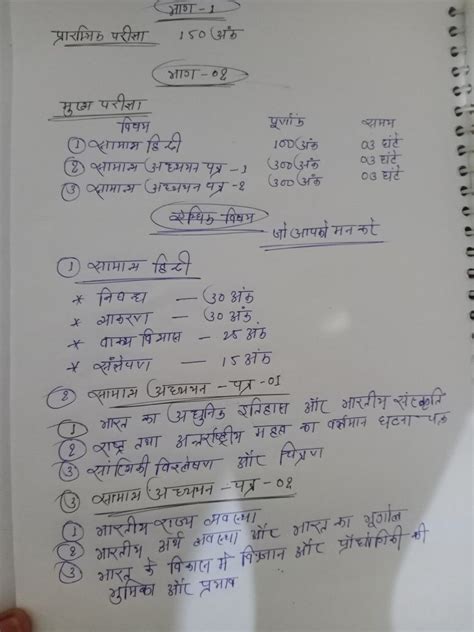 भाग - 1
प्रारंभिक परीक्षा 150 अंक
भाग - 02
मुख्य परीक्षा
विषय पूर्णांक समय
① सामान्य हिन्दी 100 अंक 03 घंटे
② सामान्य अध्ययन पत्र - 1 300 अंक 03 घंटे
③ सामान्य अध्ययन पत्र - 2 300 अंक 03 घंटे
विषय
जो आपको मन करे
① सामान्य हिन्दी
* निबन्ध — 30 अंक
* व्याकरण — 30 अंक
* वाक्य विन्यास — 25 अंक
* संक्षेपण — 15 अंक
② सामान्य अध्ययन - पत्र - 01
① भारत का आधुनिक इतिहास और भारतीय संस्कृति
② राष्ट्र तथा अन्तर्राष्ट्रीय महत्व का वर्तमान घटना - चक्र
③ सांख्यिकी विश्लेषण और चित्रण
③ सामान्य अध्ययन - पत्र - 02
① भारतीय राज्य व्यवस्था
② भारतीय अर्थ व्यवस्था और भारत का भूगोल
③ भारत के विकास में विज्ञान और प्रौद्योगिकी की
भूमिका और प्रभाव